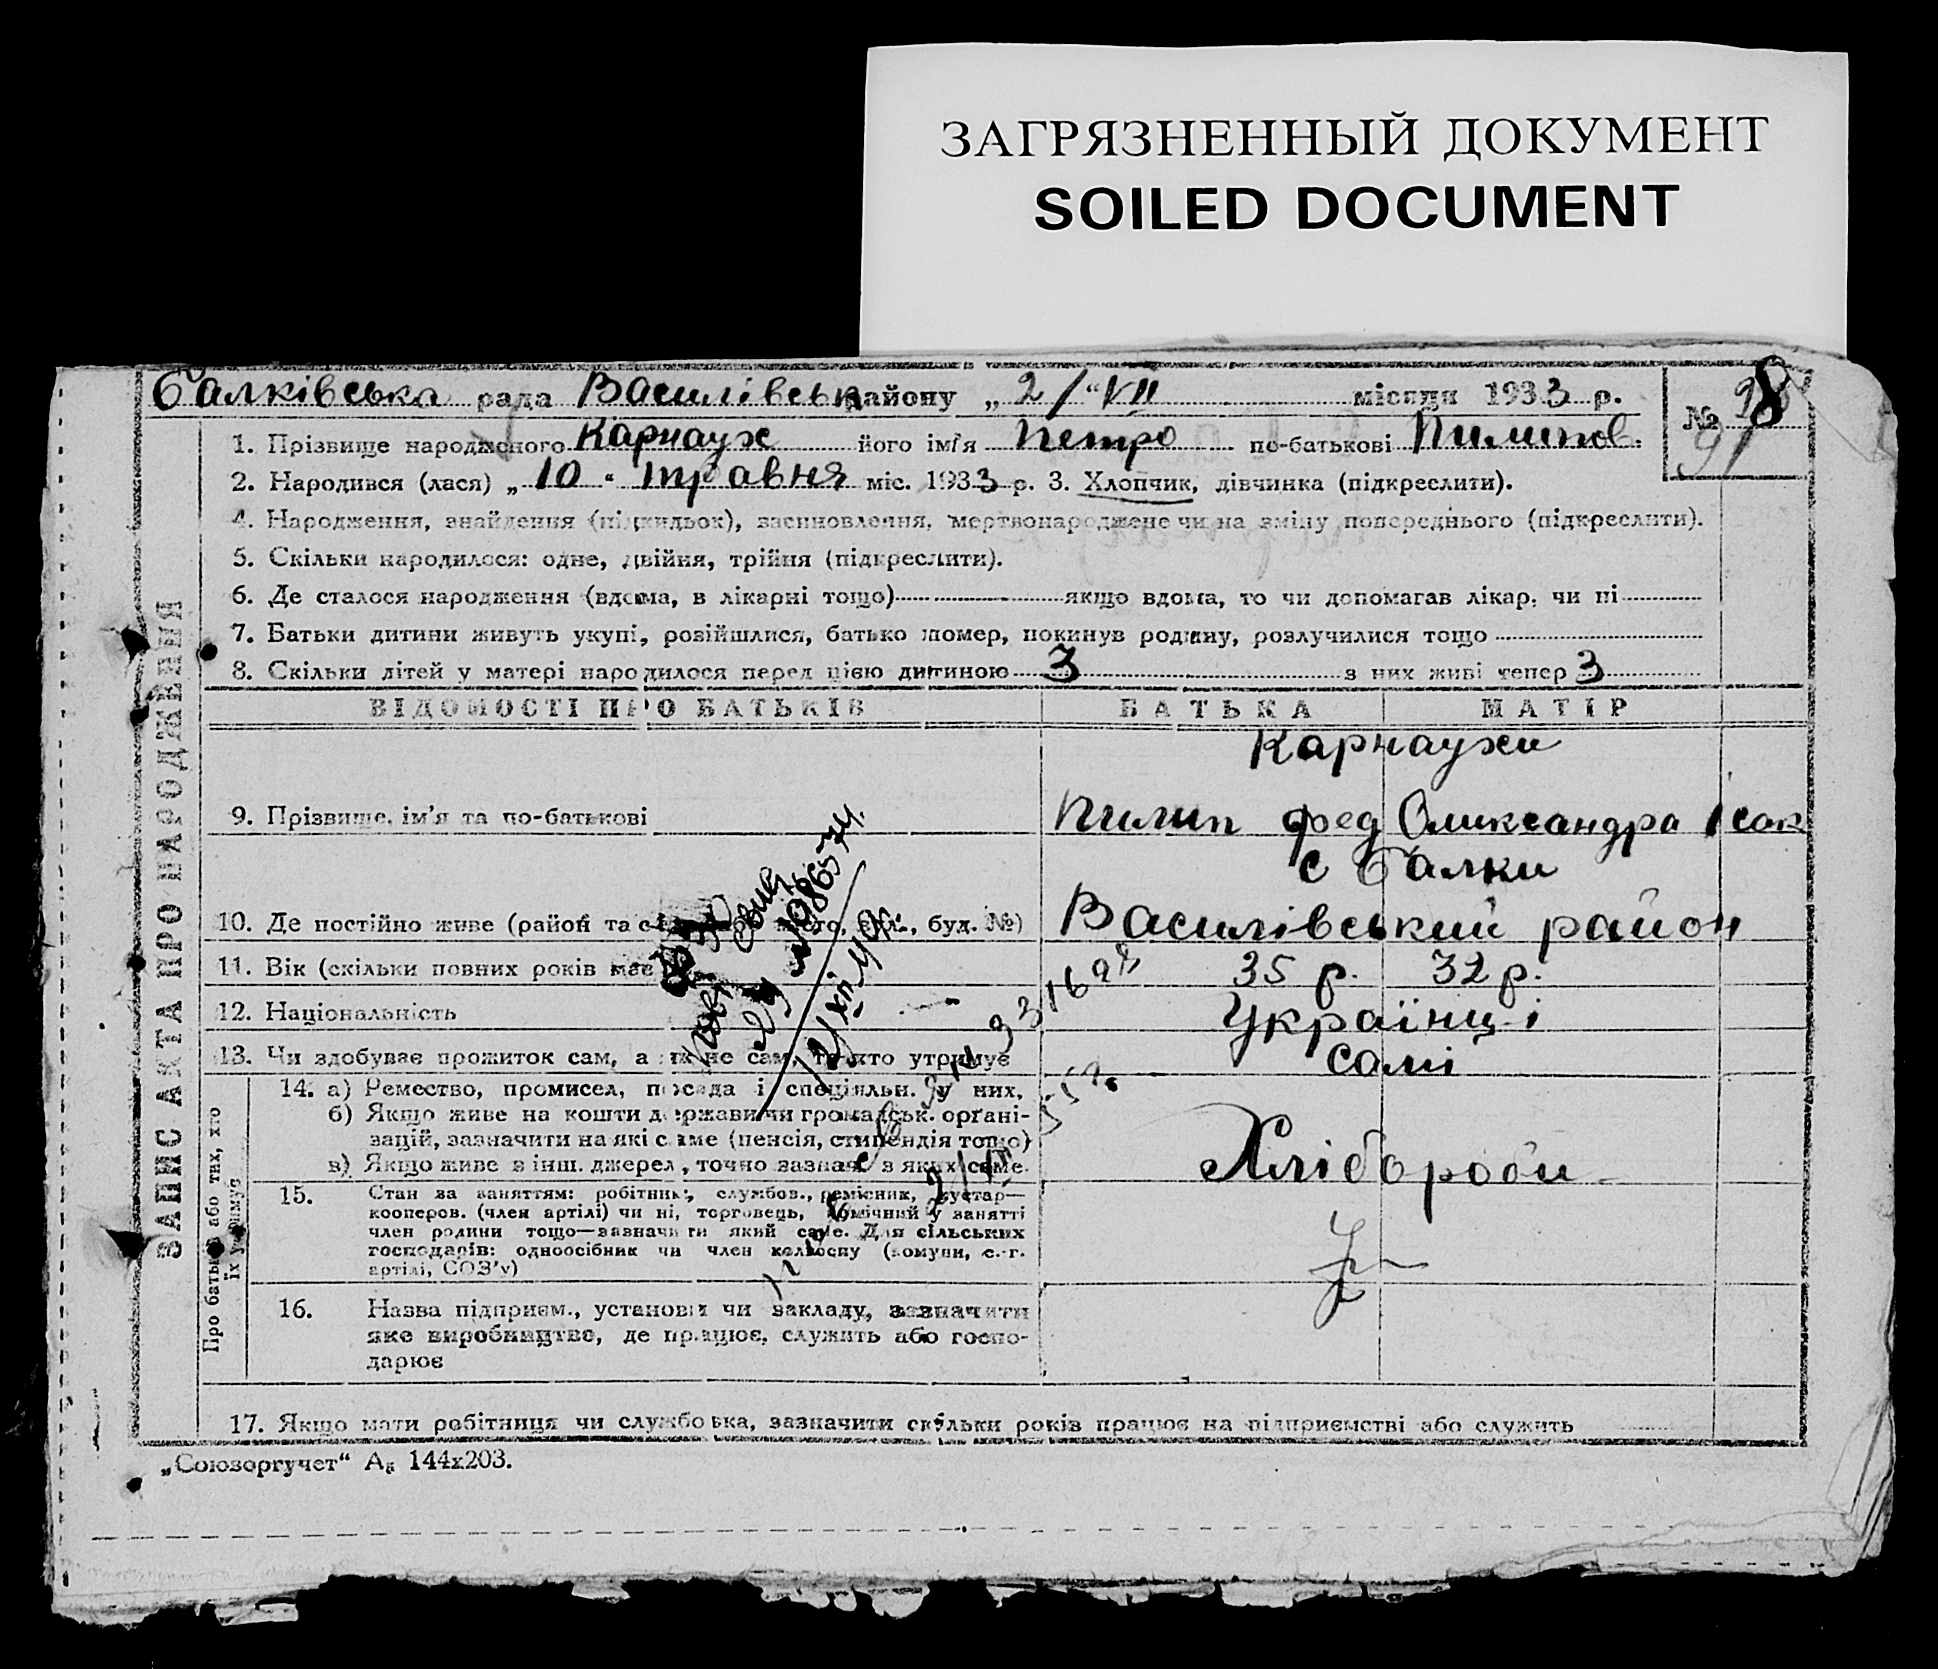 ЗАГРЯЗНЕННЫЙ ДОКУМЕНТ
SOILED DOCUMENT
Балківська рада Василівськ району „2/"VII місяця 1933 р.
№ 8
91
1. Прізвище народженого Карнаух його ім'я Петро по-батькові Пилипов.
2. Народився (лася) „10" травня міс. 1933 р. 3. Хлопчик, дівчинка (підкреслити).
4. Народження, знайдення (підкидьок), засиновлення, мертвонароджене чи на зміну попереднього (підкреслити).
5. Скільки народилося: одне, двійня, трійня (підкреслити).
6. Де сталося народження (вдома, в лікарні тощо) якщо вдома, то чи допомагав лікар, чи ні
7. Батьки дитини живуть укупі, розійшлися, батько помер, покинув родину, розлучилися тощо
8. Скільки дітей у матері народилося перед цією дитиною 3 з них живі тепер 3
ВІДОМОСТІ ПРО БАТЬКІВ БАТЬКА МАТІР
Карнаухи
9. Прізвище, ім'я та по-батькові Пилип Фед Олександра Ісак
с Балки
10. Де постійно живе (район та с місто, вул., буд. №) Василівський район
11. Вік (скільки повних років має 35 р. 32 р.
12. Національність Українці
13. Чи здобуває прожиток сам, а як не сам, то хто утримує самі
14. а) Ремество, промисел, посада і спеціяльн. у них,
б) Якщо живе на кошти держави чи громадськ. орґані-
зацій, зазначити на які саме (пенсія, стипендія тощо)
в) Якщо живе з інш. джерел, точно зазнач. з яких саме.
Хлібороби
15. Стан за заняттям: робітник, службов., ремісник, кустар—
кооперов. (член артілі) чи ні, торговець, помічний у занятті
член родини тощо—зазначити який саме. Для сільських
господарів: одноосібник чи член колгоспу (комуни, с.-г.
артілі, СОЗ'у)
16. Назва підприєм., установи чи закладу, зазначити
яке виробництво, де працює, служить або госпо-
дарює
17. Якщо мати робітниця чи службовка, зазначити скільки років працює на підприємстві або служить
„Союзоргучет" А₅ 144х203.
ЗАПИС АКТА ПРО НАРОДЖЕННЯ
Про батьків або тих, хто
їх утримує